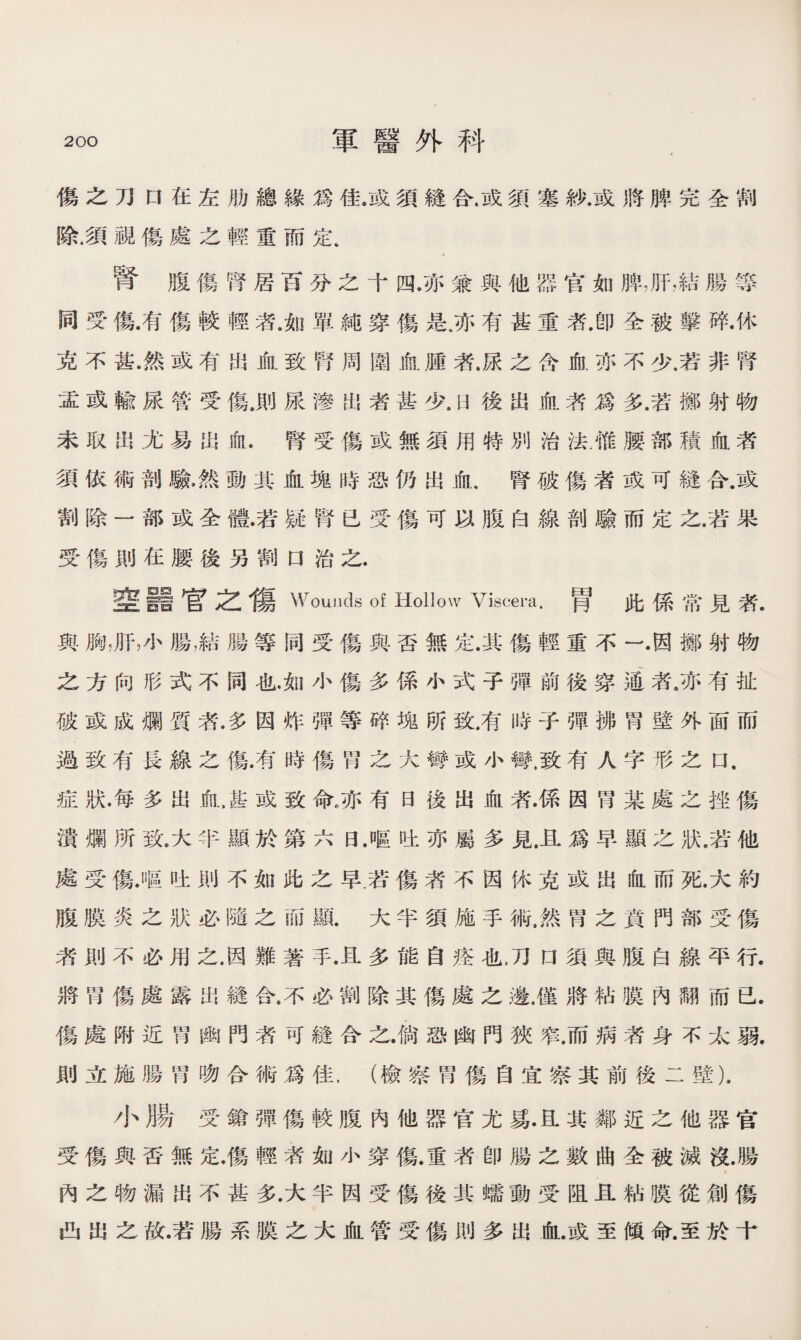 200 軍醫外科
傷之刀口在左肋總緣爲佳.或須縫合.或須塞紗.或將脾完全割
除.須視傷處之輕重而定.
腎 腹傷腎居百分之十四.亦兼與他器官如脾,肝,結腸等
同受傷.有傷較輕者.如單純穿傷是.亦有甚重者.卽全被擊碎.休
克不甚.然或有出血致腎周圍血腫者.尿之含血亦不少.若非腎
盂或輸尿管受傷.則尿滲出者甚少.日後出血者爲多.若擲射物
未取出尤易出血. 腎受傷或無須用特別治法.惟腰部積血者
須依術剖驗.然動其血塊時恐仍出血. 腎破傷者或可縫合.或
割除一部或全體.若疑腎已受傷可以腹白線剖驗而定之.若果
受傷則在腰後另割口治之.
空器官之傷 Wounds of Hollow Viscera. 胃 此係常見者.
與胸,肝,小腸,結腸等同受傷與否無定.其傷輕重不一.因擲射物
之方向形式不同也.如小傷多係小式子彈前後穿通者.亦有扯
破或成爛質者.多因炸彈等碎塊所致.有時子彈拂胃壁外面而
過致有長線之傷.有時傷胃之大彎或小彎.致有人字形之口.
症狀.每多出血.甚或致命.亦有日後出血者.係因胃某處之挫傷
潰爛所致.大半顯於第六日.嘔吐亦屬多見.且爲早顯之狀.若他
處受傷.嘔吐則不如此之早.若傷者不因休克或出血而死.大約
腹膜炎之狀必隨之而顯. 大半須施手術.然胃之賁門部受傷
者則不必用之.因難著手.且多能自痊也.刀口須與腹白線平行.
將胃傷處露出縫合.不必割除其傷處之邊.僅將粘膜內翻而已.
傷處附近胃幽門者可縫合之.倘恐幽門狹窄.而病者身不太弱.
則立施腸胃吻合術爲佳. (檢察胃傷自宜察其前後二壁).
小腸 受鎗彈傷較腹內他器官尤易.且其鄰近之他器官
受傷與否無定.傷輕者如小穿傷.重者卽腸之數曲全被滅沒.腸
內之物漏出不甚多.大半因受傷後其蠕動受阻且粘膜從創傷
凸出之故.若腸系膜之大血管受傷則多出血.或至傾命.至於十